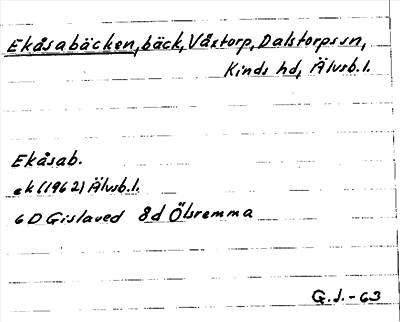 Ekåsabäcken, bäck, Våxtorp, Dalstorps sn,
Kinds hd, Älvsb. l.
Ekåsab.
ek (1962) Älvsb. l.
6D Gislaved 8d Ölsremma
G.J.-63